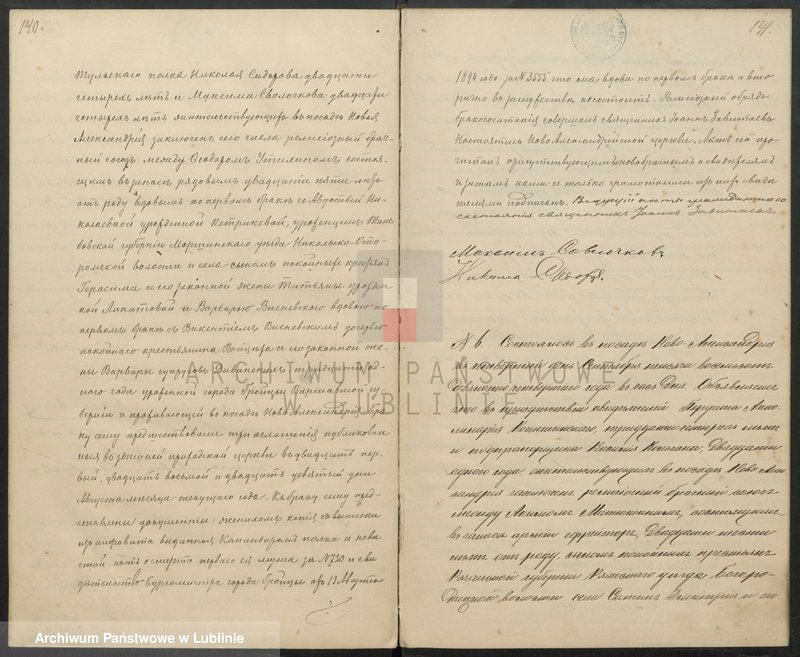 140.
Тульскаго полка Николая Сидорова двадцати
четырехъ лѣтъ и Максима Сволочкова двадцати
четырехъ лѣтъ жительствующихъ въ посадѣ Новая
Александрія заключенъ сего числа религіозный брач-
ный союзъ между Ѳеодоромъ Утехинымъ состоя-
щимъ въ запасѣ рядовымъ двадцати пяти лѣтъ
отъ роду вдовымъ по первомъ бракѣ съ Авдотьей Ни-
колаевной урожденной Петрикевой, уроженцемъ Там-
бовской губерніи Моршанскаго уѣзда Никольско-Ото-
рмской волости и села сыномъ покойныхъ крестьянъ
Герасима и его законной жены Татьяны урожден-
ной Липатовой и Варварою Висневскою вдовою по
первомъ бракѣ съ Викентіемъ Висневскимъ дочерью
покойнаго крестьянина Войцѣха и его законной же-
ны Варвары супруговъ Диванскихъ тридцати од-
ного года урожденной города Гройцы Варшавской гу-
берніи и проживающей въ посадѣ Ново Александрія бра-
ку сему предшествовали три оглашенія публикован-
ныя въ здѣшней приходской церкви въ двадцать пер-
вый, двадцать восьмой и двадцать девятый дни
Августа мѣсяца текущаго года. Къ браку сему пред-
ставлены документы: женихомъ копія съ выписки
изъ алфавита выданная Командиромъ полка а невѣ-
стой актъ о смерти перваго ея мужа за № 730 и сви-
дѣтельство Бургомистра города Гройцы отъ 13 Августа
141.
1894 года за № 3555 что она вдова по первомъ бракѣ и вто-
рично въ замужествѣ не состоитъ. Религіозный обрядъ
бракосочетанія совершалъ священникъ Іоаннъ Завитаевъ
Настоятель Ново Александрійской церкви. Актъ сей про-
читанъ присутствующимъ новобрачнымъ и свидѣтелямъ
и затѣмъ нами и только грамотными изъ нихъ свидѣ-
телями подписанъ. Ведущій акты гражданскаго
состоянія священникъ Іоаннъ Завитаевъ
Максимъ Сволочковъ
Сидоровъ.
№ 6. Состоялось въ посадѣ Ново Александрія
въ четвертый день Сентября мѣсяца восемьсотъ
девяносто четвертаго года въ часъ дня. Объявляемъ
что въ присутствіи свидѣтелей
тридцати четырехъ лѣтъ
и Василія двадцати
одного года жительствующихъ въ посадѣ Ново Алек-
сандрія заключенъ религіозный брачный союзъ
между состоящимъ
въ запасѣ арміи ефрейторъ, двадцати шести
лѣтъ отъ роду, сыномъ покойныхъ крестьянъ
Казанской губерніи уѣзда Богоро-
дицкой волости села и его
ARCHIWUM PAŃSTWOWE
W LUBLINIE
Archiwum Państwowe w Lublinie